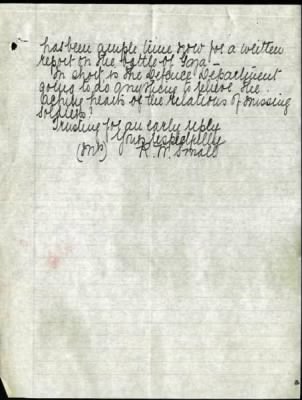 has been ample time now for a written
report on the battle of Gaza –
In short is the Defence Department
going to do anything to relieve the
aching hearts of the relations of missing
soldiers.
Trusting for an early reply
Yours respectfully
(Mrs) R. W. Small